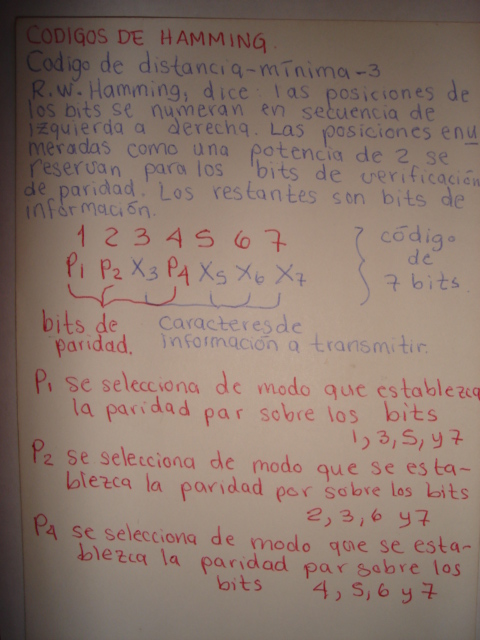 CODIGOS DE HAMMING.
Codigo de distancia-mínima-3
R.W. Hamming, dice: las posiciones de
los bits se numeran en secuencia de
izquierda a derecha. Las posiciones enu
meradas como una potencia de 2 se
reservan para los bits de verificación
de paridad. Los restantes son bits de
información.
1 2 3 4 5 6 7
P1 P2 X3 P4 X5 X6 X7
código
de
7 bits.
bits de
paridad.
caracteres de
información a transmitir.
P1 se selecciona de modo que establezca
la paridad par sobre los bits
1, 3, 5, y 7
P2 se selecciona de modo que se esta-
blezca la paridad par sobre los bits
2, 3, 6 y 7
P4 se selecciona de modo que se esta-
blezca la paridad par sobre los
bits 4, 5, 6 y 7